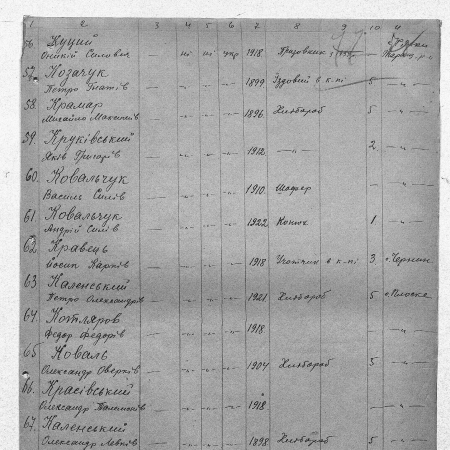 1. 2 3 4 5 6 7 8 9 10 11
56 Куций
Оникій Силович ні ні укр 1918
57. Козачук
Петро Гнатів 1899 Їздовий в к-пі 5
58. Крамар
Михайло Максимів 1896. Хлібороб 5
59. Круківський
Яків Григорів 1912 2
60. Ковальчук
Василь Силів 1910 Шофер
61. Ковальчук
Андрій Силів 1922 Конюх 1.
62 Кравець
Йосип Карпів 1918 в к-пі 3
63 Каленський
Петро Олександрів 1921 Хлібороб 5 с. Плоске
64. Котляров
Федор Федорів 1918
65 Коваль
Олександр Оверків 1904 Хлібороб 5
66. Красівський
Олександр 1918
67. Каленський
Олександр Левків 1898 Хлібороб 5